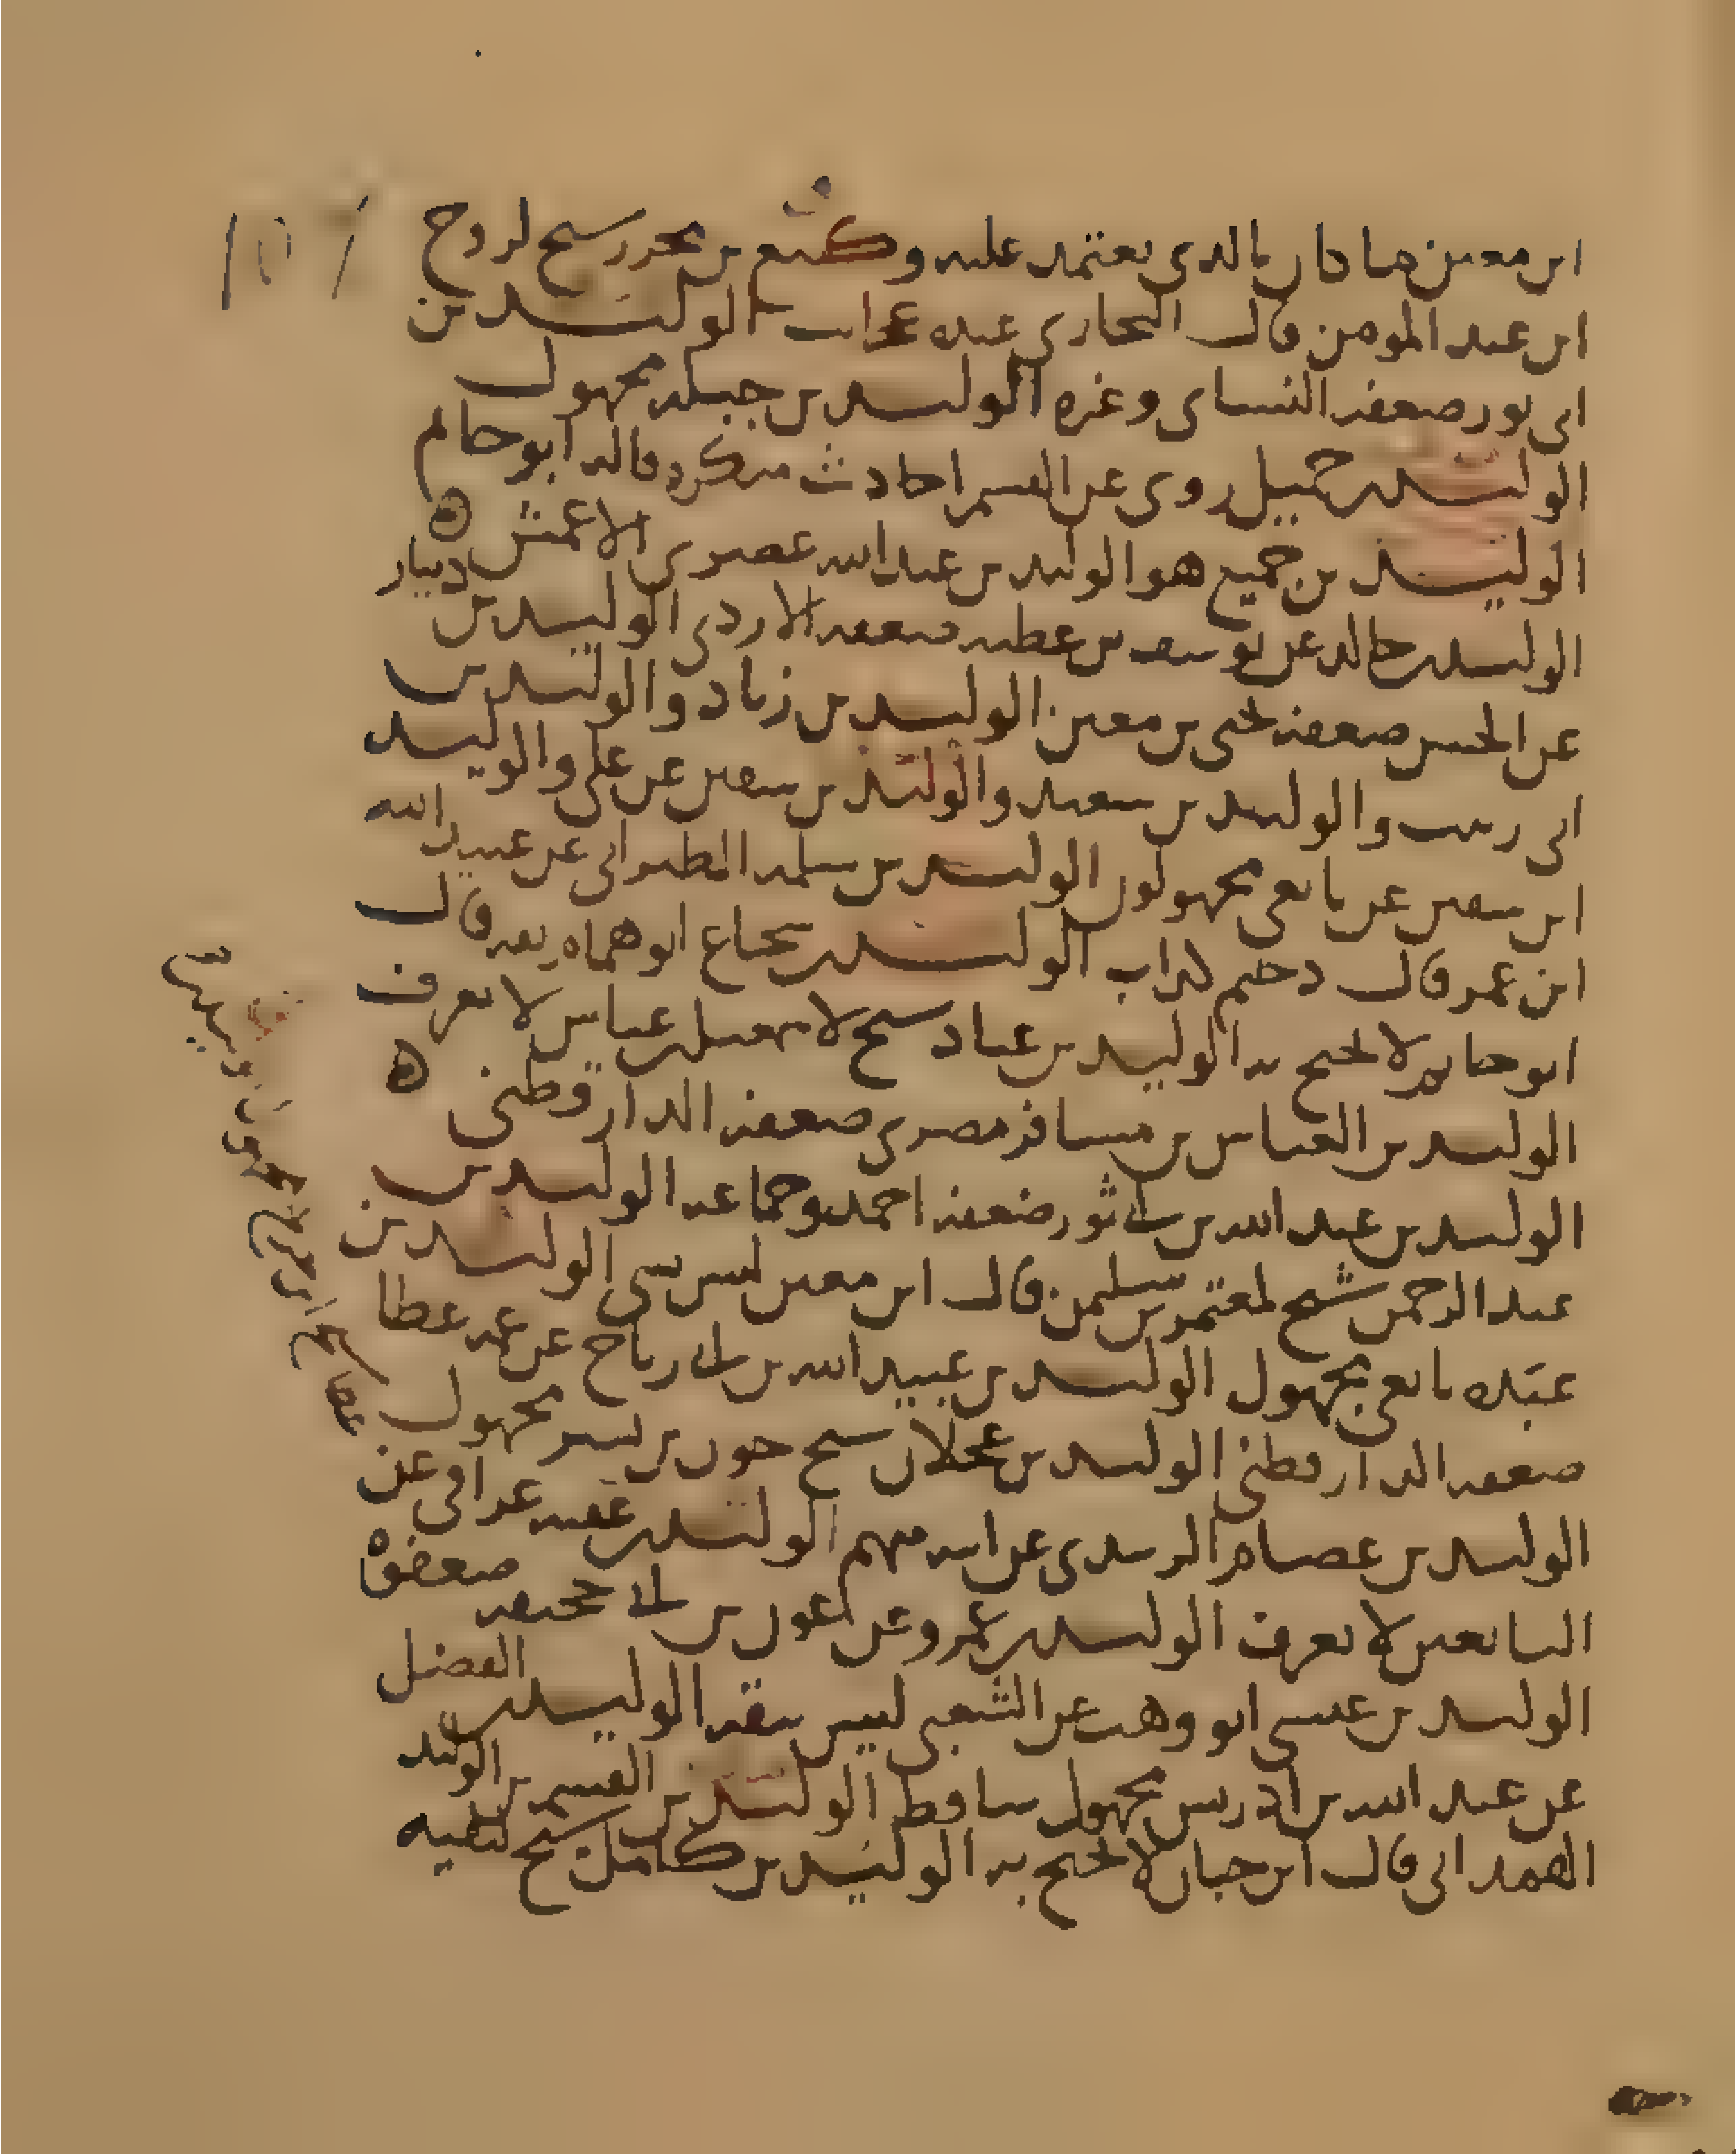 ابن معين ما كان بالذي يعتمد عليه وكيع بن محرز شيخ لروح
ابن عبد المومن قال البخاري عنده عجائب الوليد بن
ابي ثور ضعفه النساي وغيره الوليد بن جبلة مجهول
الوليد بن جميل روى عن القسم احاديث منكرة قاله ابو حاتم
الوليد بن جميع هو الوليد بن عبد الله عصري الاعمش
الوليد بن خالد عن يوسف بن عطية ضعفه الازدي الوليد بن دينار
عن الحسن ضعفه يحيى بن معين الوليد بن زياد والوليد بن
ابي زينب والوليد بن سعيد والوليد بن سفين عن علي والوليد
ابن سفين عن تابعي مجهولون الوليد بن سلمة الطبراني عن عبيد الله
ابن عمر قال دحيم كذاب الوليد بن شجاع ابو همام ثقة قال
ابو حاتم لا يحتج به الوليد بن عباد شيخ لاسمعيل بن عياش لا يعرف
الوليد بن العباس بن مسافر مصري ضعفه الدارقطني
الوليد بن عبد الله بن ابي ثور ضعفه احمد وجماعة الوليد بن
عبد الرحمن شيخ لمعتمر بن سليمن قال ابن معين ليس بشي الوليد بن
عبده تابعي مجهول الوليد بن عبيد الله بن ابي رباح عن عمه عطا
ضعفه الدارقطني الوليد بن عجلان شيخ حون بن بشير مجهول
الوليد بن عصام الزبيدي عن ابيه متهم الوليد بن عقبة عراقي عن
التابعين لا يعرف الوليد بن عمرو عن عون بن ابي جحيفة ضعفوه
الوليد بن عيسى ابو وهب عن الشعبي ليس بثقة الوليد بن الفضل
عن عبد الله بن ادريس مجهول ساقط الوليد بن القسم بن الوليد
الهمداني قال ابن حبان لا يحتج به الوليد بن كامل شيخ لبقيه